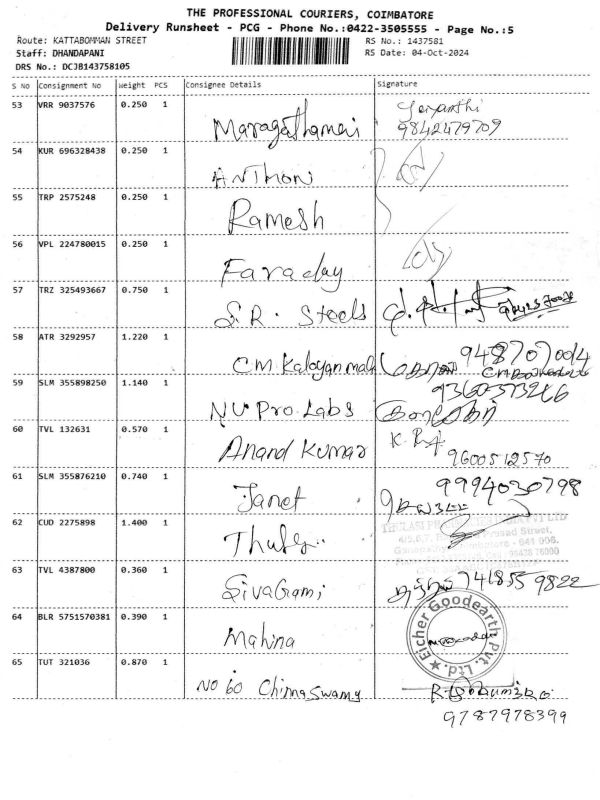 THE PROFESSIONAL COURIERS, COIMBATORE
Delivery Runsheet - PCG - Phone No.:0422-3505555 - Page No.:5
Route: KATTABOMMAN STREET
RS No.: 1437581
Staff: DHANDAPANI
RS Date: 04-Oct-2024
DRS No.: DCJB143758105
S No Consignment No Weight PCS Consignee Details Signature
53 VRR 9037576 0.250 1 Maragathamani 9842479709
54 KUR 696328438 0.250 1 Anthoni
55 TRP 2575248 0.250 1 Ramesh
56 VPL 224780015 0.250 1 Faraday
57 TRZ 325493667 0.750 1 S.R. Steels
58 ATR 3292957 1.220 1 CM Kalayan mall 9487070014
59 SLM 355898250 1.140 1 NU Pro Labs 9360573266
60 TVL 132631 0.570 1 Anand Kumar K.R.A 9600512570
61 SLM 355876210 0.740 1 Janet 9994030798
62 CUD 2275898 1.400 1
63 TVL 4387800 0.360 1 Sivagami 7418559822
64 BLR 5751570381 0.390 1 Mahina
Eicher Goodearth Pvt. Ltd.
65 TUT 321036 0.870 1 No 60 Chinnaswamy
9787978399